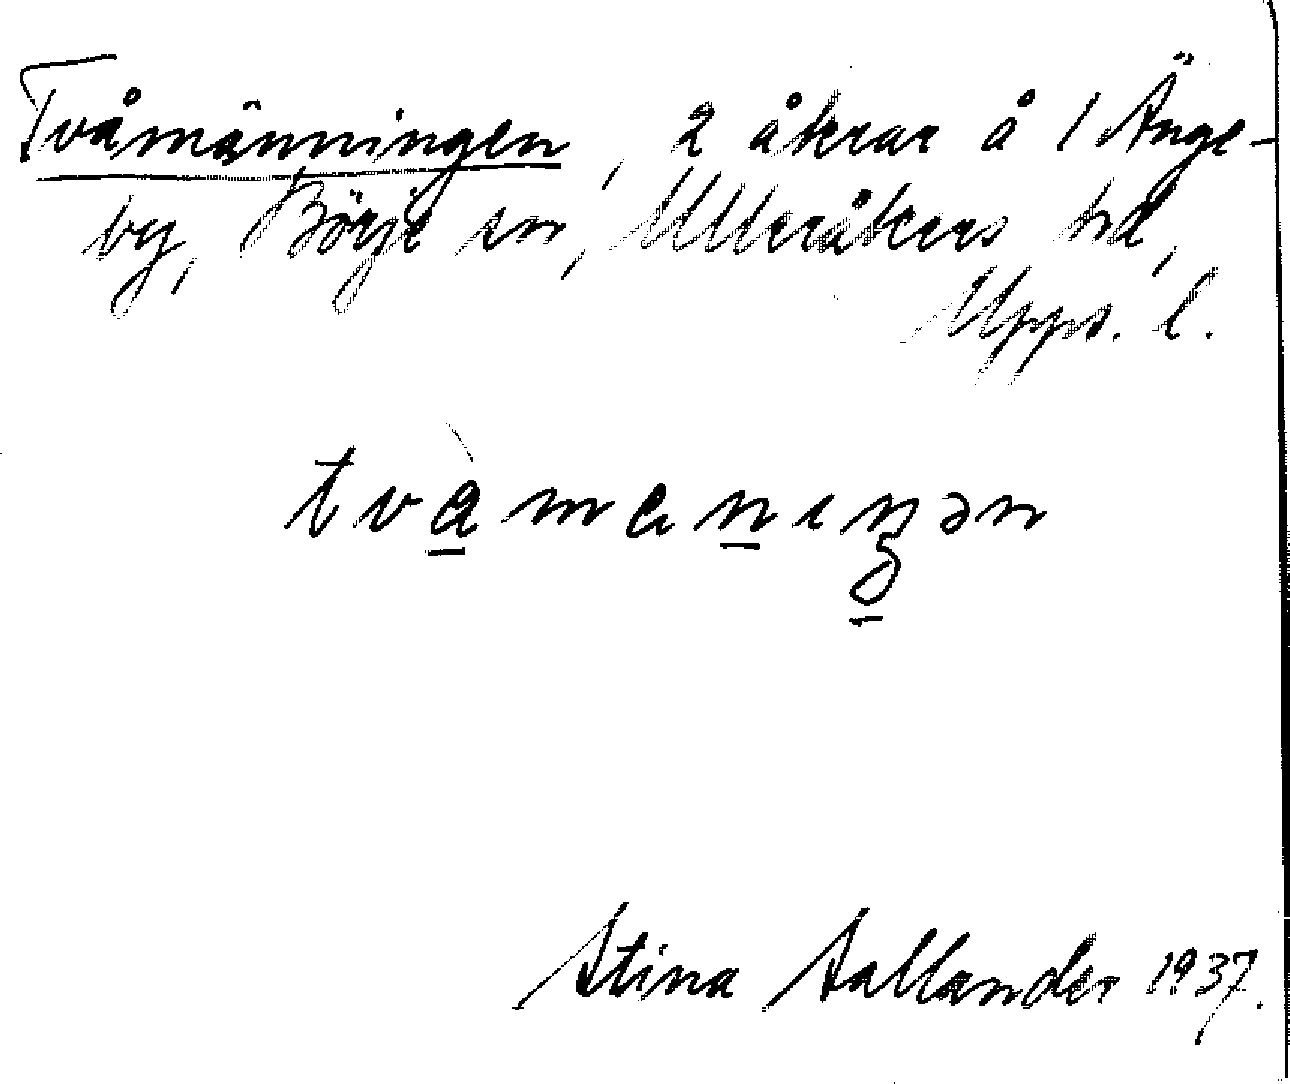 Tvåmänningen, 2 åkrar å 1 Änge-
by, Börje sn, Ulleråkers hd,
Upps. l.
tvåmäniŋən
Stina Sallander 1937.